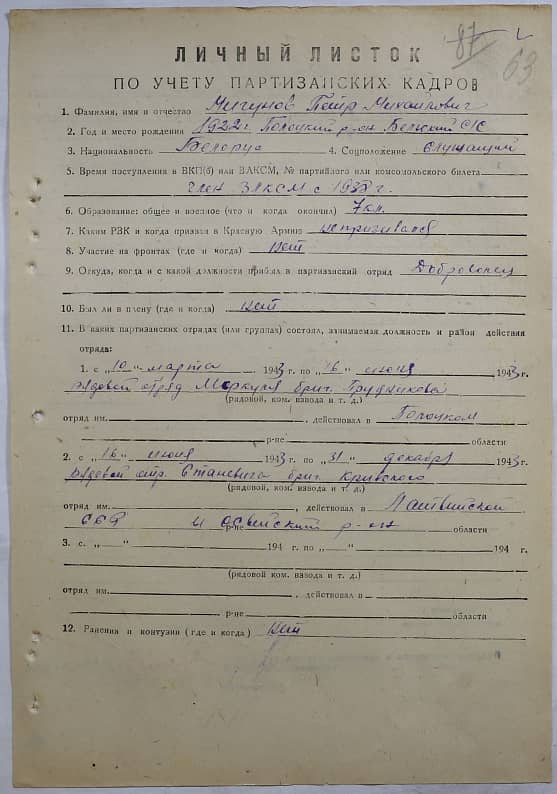 87
63
ЛИЧНЫЙ ЛИСТОК
ПО УЧЕТУ ПАРТИЗАНСКИХ КАДРОВ
1. Фамилия, имя и отчество Мигунов Петр Михайлович
2. Год и место рождения 1922 г Полоцкий р-он Бельский С/С
3. Национальность Белорус 4. Соцположение Служащий
5. Время поступления в ВКП(б) или ВЛКСМ, № партийного или комсомольского билета
член ВЛКСМ с 1938 г.
6. Образование: общее и военное (что и когда окончил) 7 кл.
7. Каким РВК и когда призван в Красную Армию непризывался
8. Участие на фронтах (где и когда) нет
9. Откуда, когда и с какой должности прибыл в партизанский отряд Доброволец
10. Был ли в плену (где и когда) нет
11. В каких партизанских отрядах (или группах) состоял, занимаемая должность и район действия
отряда:
1. с „10" марта 1943 г. по „16" июня 1943 г.
рядовой отряд Меркуля бриг. Прудникова
(рядовой, ком. взвода и т. д.)
отряд им. , действовал в Полоцком
р-не области
2. с „16" июня 1943 г. по „31" декабря 1943 г.
рядовой отр. Станевича бриг. Кривского
(рядовой, ком. взвода и т. д.)
отряд им. , действовал в Латвийской
ССР и Освейский р-он
р-не области
3. с „ " 194 г. по „ " 194 г.
(рядовой, ком. взвода и т. д.)
отряд им. , действовал в
р-не области
12. Ранения и контузии (где и когда) нет